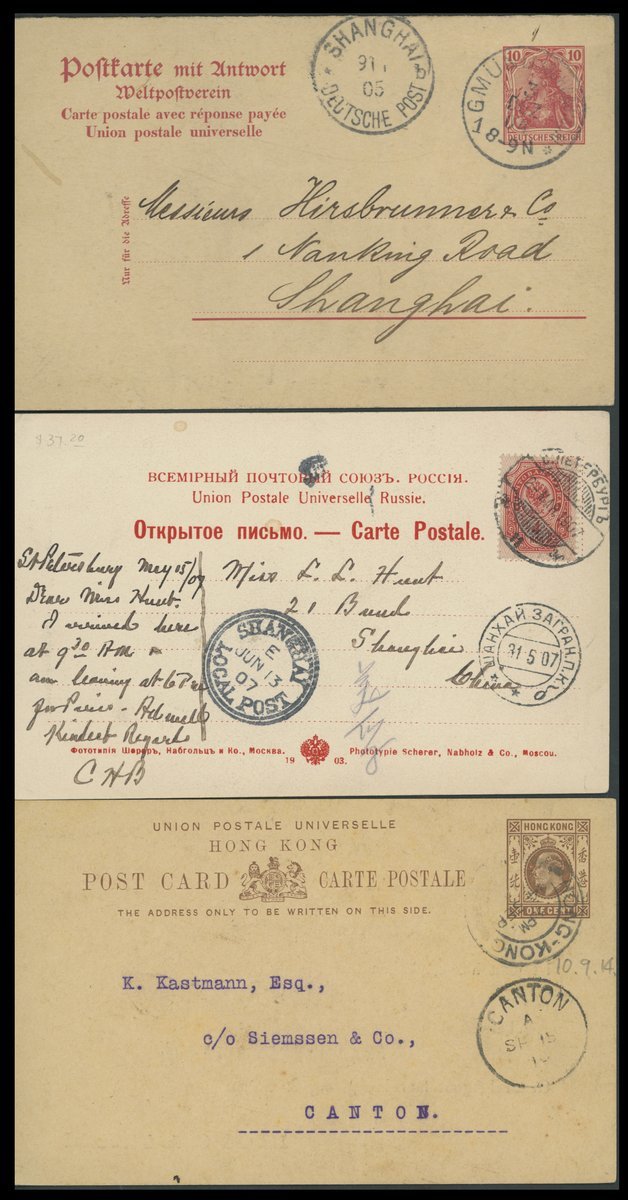 Postkarte mit Antwort
Weltpostverein
Carte postale avec réponse payée
Union postale universelle
SHANGHAI
DEUTSCHE POST
05
GMÜ
8-9N
10 10
DEUTSCHES REICH
Nur für die Adresse
Messieurs Hirsbrunner & Co
1 Nanking Road
Shanghai.
$37.20
ВСЕМІРНЫЙ ПОЧТОВЫЙ СОЮЗЪ. РОССІЯ.
Union Postale Universelle Russie.
Открытое письмо. — Carte Postale.
С.ПЕТЕРБУРГЪ
St Petersburg May 15/07
Dear Miss Hunt.
I arrived here
at 9 30 AM &
am leaving at 6 PM
for Paris -
Kindest Regards
C H B
Miss L. L. Hunt
21 Bund
Shanghai
China
SHANGHAI
E
JUN 13
07
LOCAL POST
ШАНХАЙ ЗАГРАН.П.К.
31 5 07
Фототипія Шереръ, Набгольцъ и Ко., Москва.
1903.
Phototypie Scherer, Nabholz & Co., Moscou.
UNION POSTALE UNIVERSELLE
HONG KONG
POST CARD CARTE POSTALE
THE ADDRESS ONLY TO BE WRITTEN ON THIS SIDE.
HONG KONG
壹 香
北 港
ONE CENT
HONG-KONG
10.9.14.
K. Kastmann, Esq.,
c/o Siemssen & Co.,
CANTON.
CANTON
A
SP 15